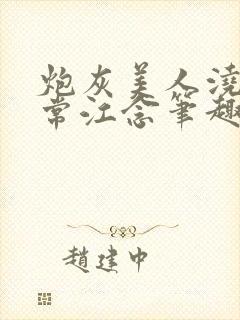 炮灰美人澆
常江念筆趣
趙建中